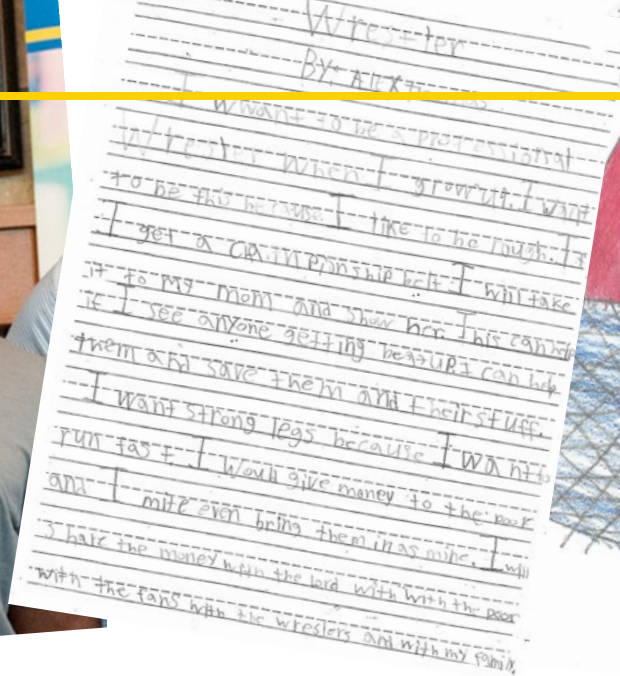 Wrestler
BY: ALEX
I Want to be a professional
Wrestler when I grow up. I want
to be this because I like to be rough. If
I get a championship belt I will take
it to my mom and show her. This can help
if I see anyone getting beat up I can help
them and save them and their stuff.
I want strong legs because I want to
run fast I Woud give money to the poor
and I mite even bring them in as mine. I will
share the money with the lord with with the poor
with the fans with the wreslers and with my family.